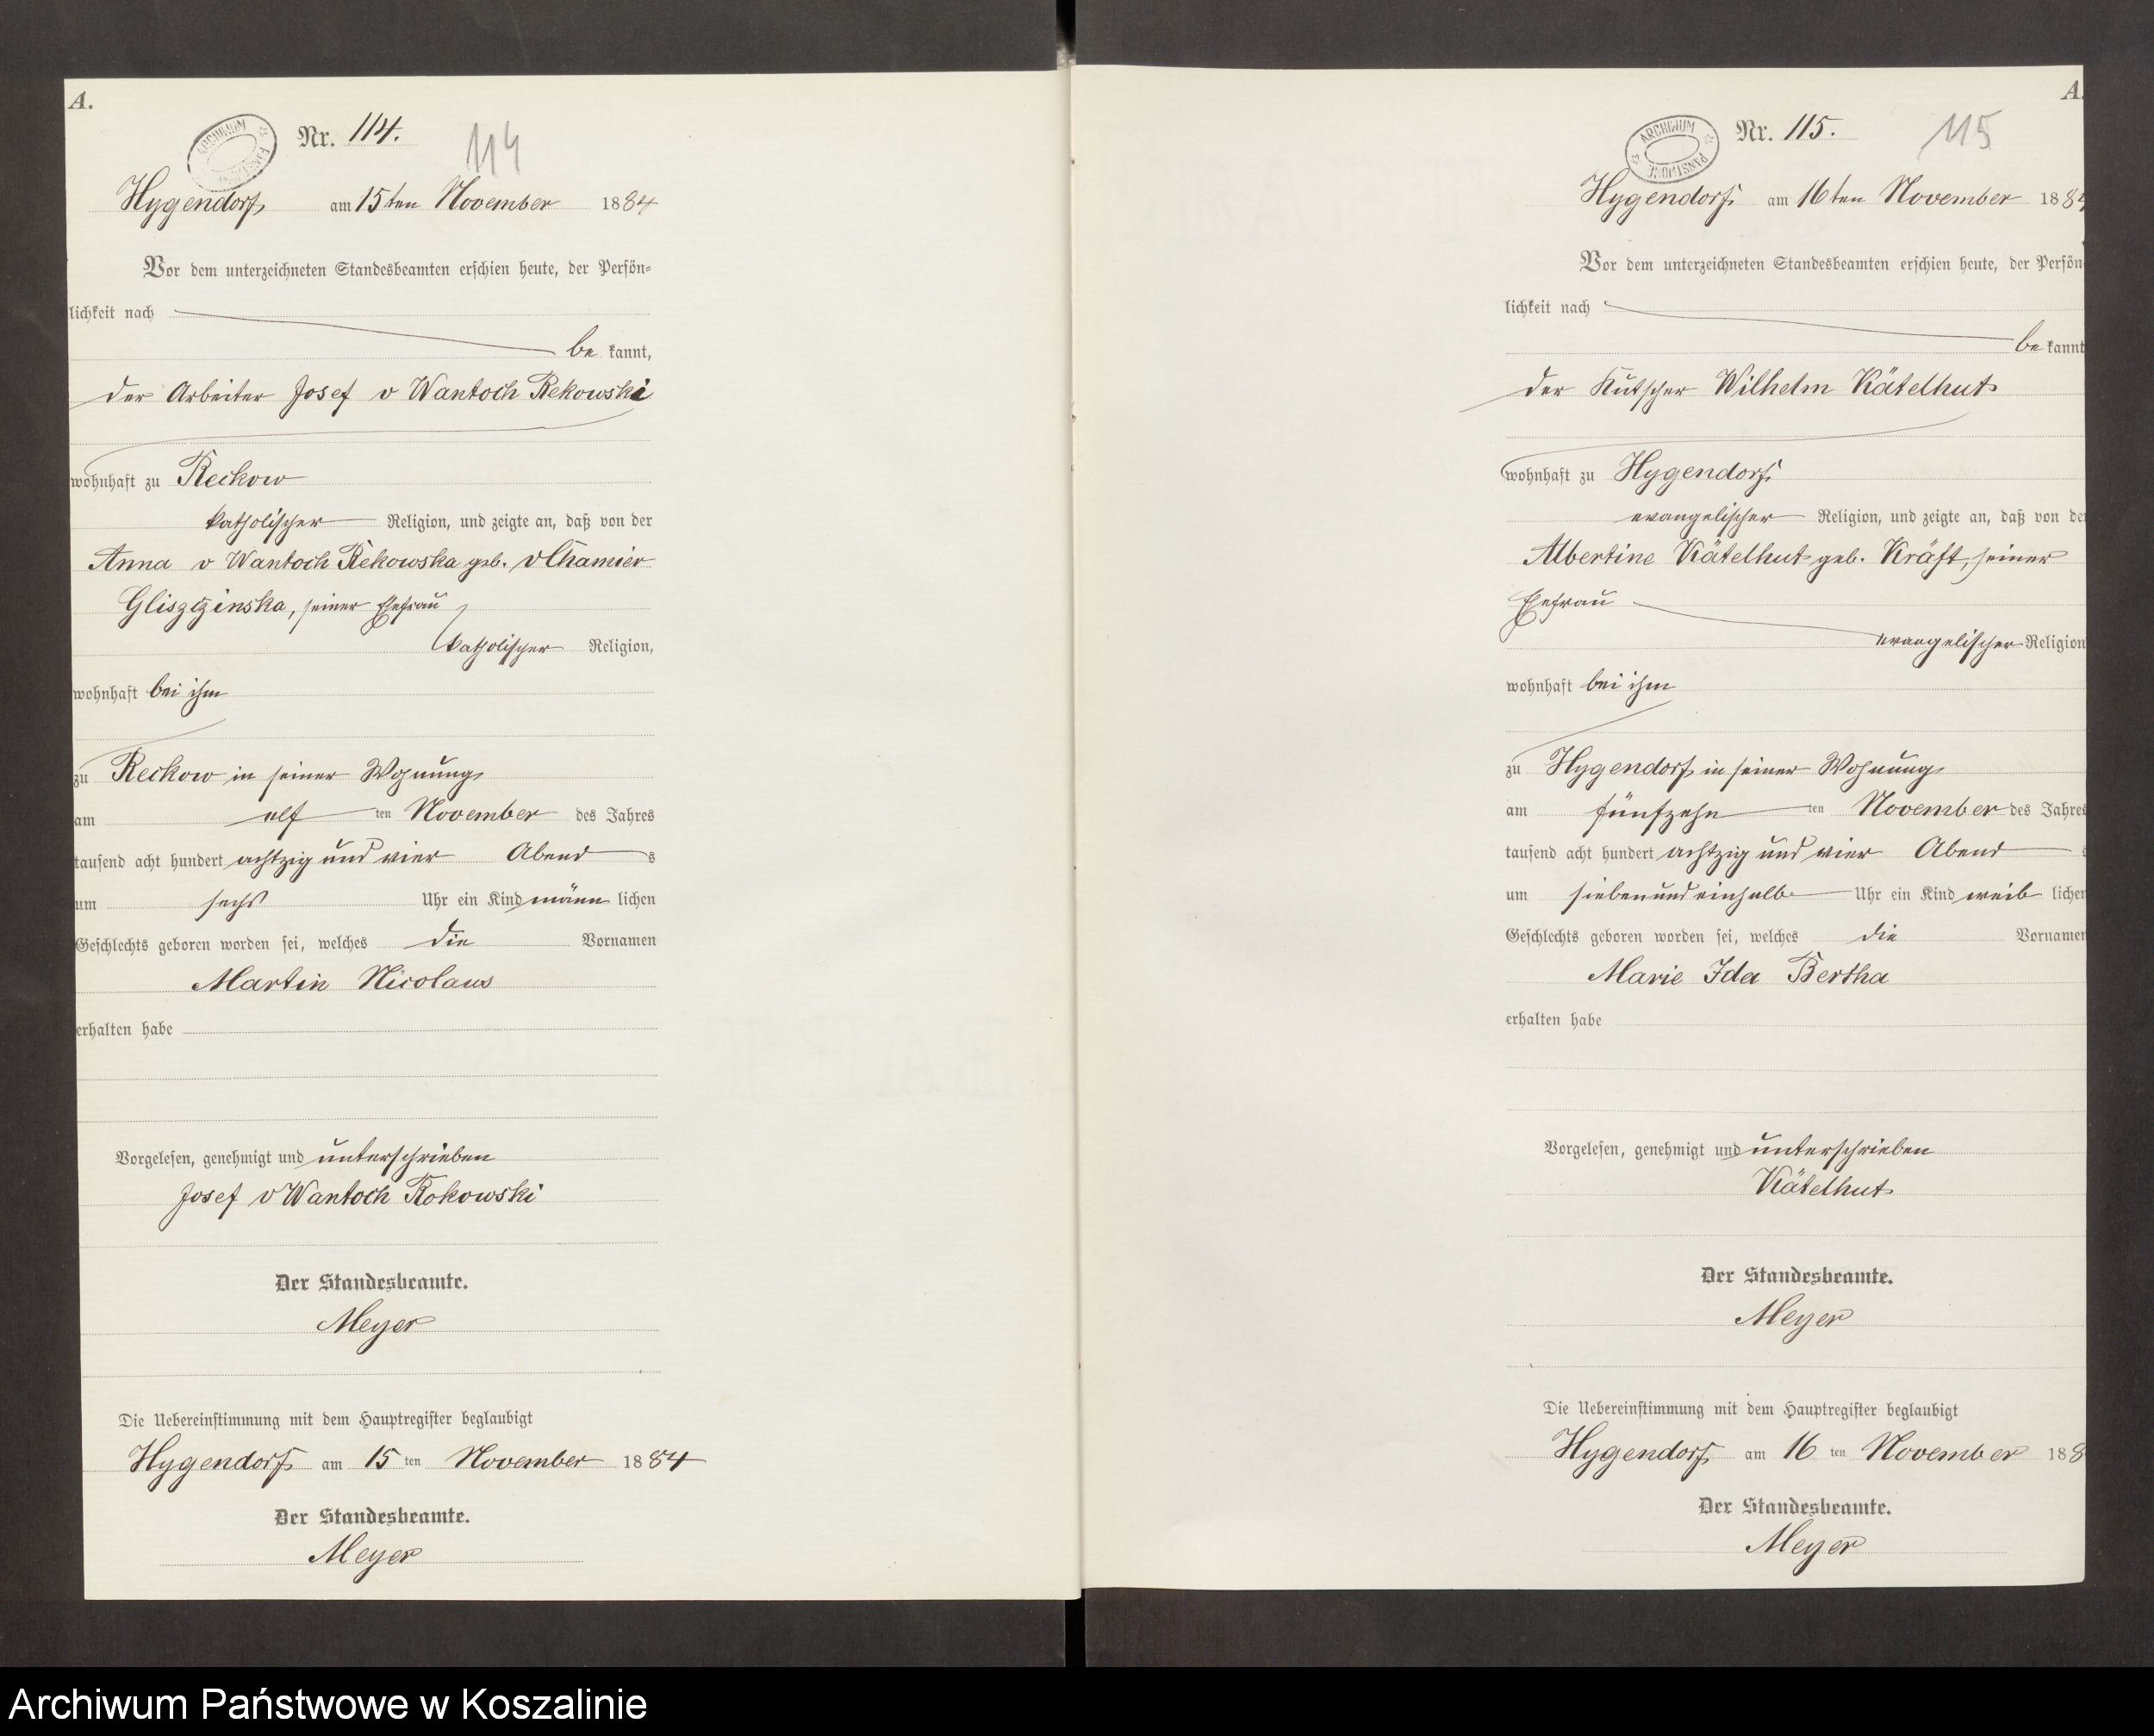 A.
Nr. 114.
114
ARCHIWUM
Hygendorf, am 15ten November 1884
Vor dem unterzeichneten Standesbeamten erschien heute, der Persön-
lichkeit nach
be kannt,
der Arbeiter Josef v Wantoch Rekowski
wohnhaft zu Reckow
katholischer Religion, und zeigte an, daß von der
Anna v Wantoch Rekowska geb. v Chamier
Gliszczinska, seiner Ehefrau
katholischer Religion,
wohnhaft bei ihm
zu Reckow in seiner Wohnung
am elf ten November des Jahres
tausend acht hundert achtzig und vier Abend s
um sechs Uhr ein Kind männ lichen
Geschlechts geboren worden sei, welches die Vornamen
Martin Nicolaus
erhalten habe
Vorgelesen, genehmigt und unterschrieben
Josef v Wantoch Rokowski
Der Standesbeamte.
Meyer
Die Uebereinstimmung mit dem Hauptregister beglaubigt
Hygendorf am 15 ten November 1884
Der Standesbeamte.
Meyer
A.
Nr. 115.
115
ARCHIWUM PAŃSTWOWE
Hygendorf am 16ten November 1884
Vor dem unterzeichneten Standesbeamten erschien heute, der Persön
lichkeit nach
be kannt
der Kutscher Wilhelm Kätelhut
wohnhaft zu Hygendorf
evangelischer Religion, und zeigte an, daß von der
Albertine Kätelhut geb. Kräft, seiner
Ehefrau
evangelischer Religion
wohnhaft bei ihm
zu Hygendorf in seiner Wohnung
am fünfzehn ten November des Jahres
tausend acht hundert achtzig und vier Abend
um sieben und einhalb Uhr ein Kind weib lichen
Geschlechts geboren worden sei, welches die Vornamen
Marie Ida Bertha
erhalten habe
Vorgelesen, genehmigt und unterschrieben
Kätelhut
Der Standesbeamte.
Meyer
Die Uebereinstimmung mit dem Hauptregister beglaubigt
Hygendorf am 16 ten November 188
Der Standesbeamte.
Meyer
Archiwum Państwowe w Koszalinie